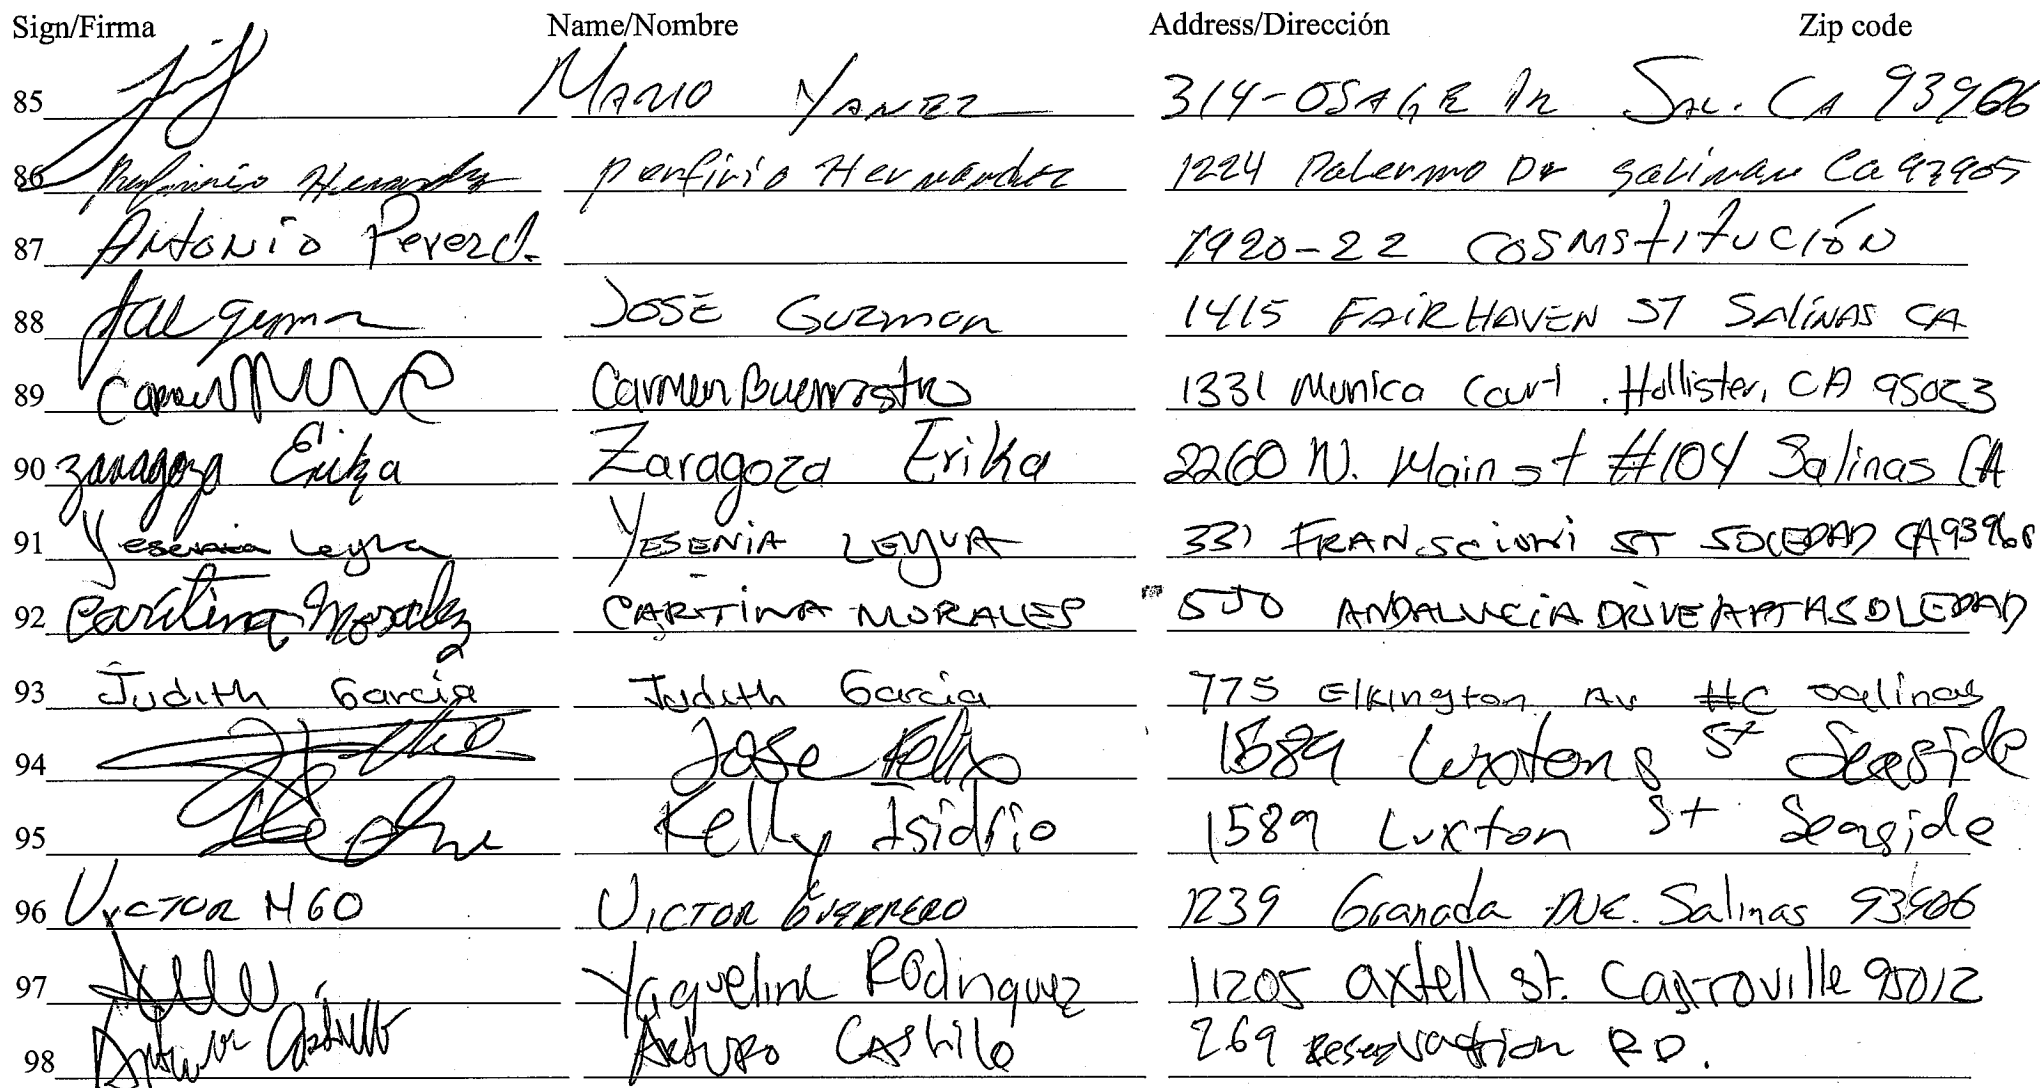 Sign/Firma Name/Nombre Address/Dirección Zip code
85 Mario Yanez 314-OSAGE Dr Sal. CA 93906
86 Porfirio Hernandez porfirio Hernandez 1224 Palermo Dr Salinas Ca 93905
87 Antonio Perez 1920-22 COSMSTITUCIÓN
88 JOSE GUZMAN 1415 FAIRHAVEN ST SALINAS CA
89 Carmen Carmen Buenrostro 1331 Monica Court. Hollister, CA 95023
90 Zaragoza Erika Zaragoza Erika 2260 N. Main st #104 Salinas CA
91 Yesenia Leyva YESENIA LEYVA 331 FRANSCIONI ST SOLEDAD CA 93960
92 Caritina Morales CARITINA MORALES ANDALUCIA DRIVE SOLEDAD
93 Judith Garcia Judith Garcia 775 Elkington Av #C Salinas
94 Jose Felix 1589 St Seaside
95 Kelly Isidrio 1589 Luxton St Seaside
96 VICTOR M GO VICTOR GUERRERO 1239 Granada AVE. Salinas 93906
97 Yaqueline Rodriquez 11205 axtell st. Castroville 95012
98 Arturo Castillo Arturo Castillo 269 Reservation RD.